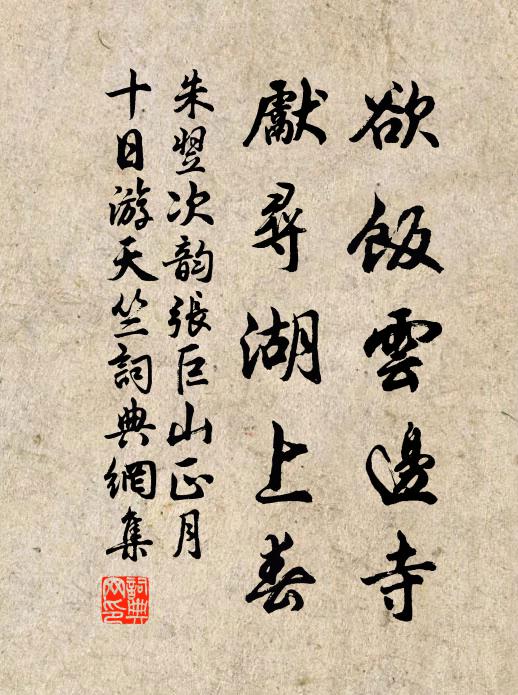 欲飯雲邊寺
獻尋湖上春
朱翌次韵張巨山正月
十日游天竺詞典網集
詞典
网印